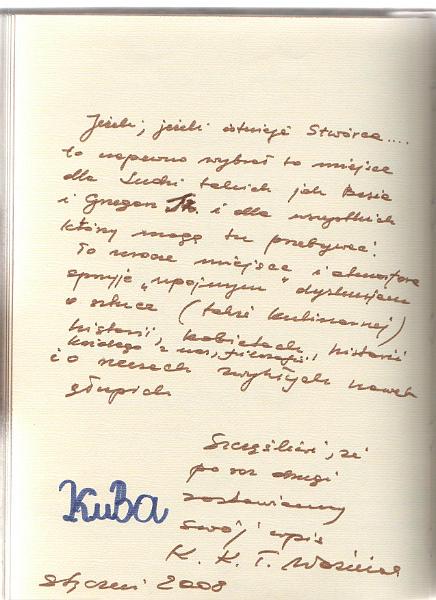 Jeżeli, jeżeli istnieje Stwórca....
to napewno wybrał to miejsce
dla Ludzi takich jak Basia
i Grzegorz St. i dla wszystkich
którzy mogą tu przebywać.
To urocze miejsce i atmosfera
sprzyja „upojnym" dyskusjom
o sztuce (także kulinarnej)
historii, kobietach, historii
każdego z nas, filozofii,
i o rzeczach zwykłych nawet
głupich
Szczęśliwi, że
po raz drugi
zostawiamy
swój wpis
K. K. T.
KuBa
styczeń 2008